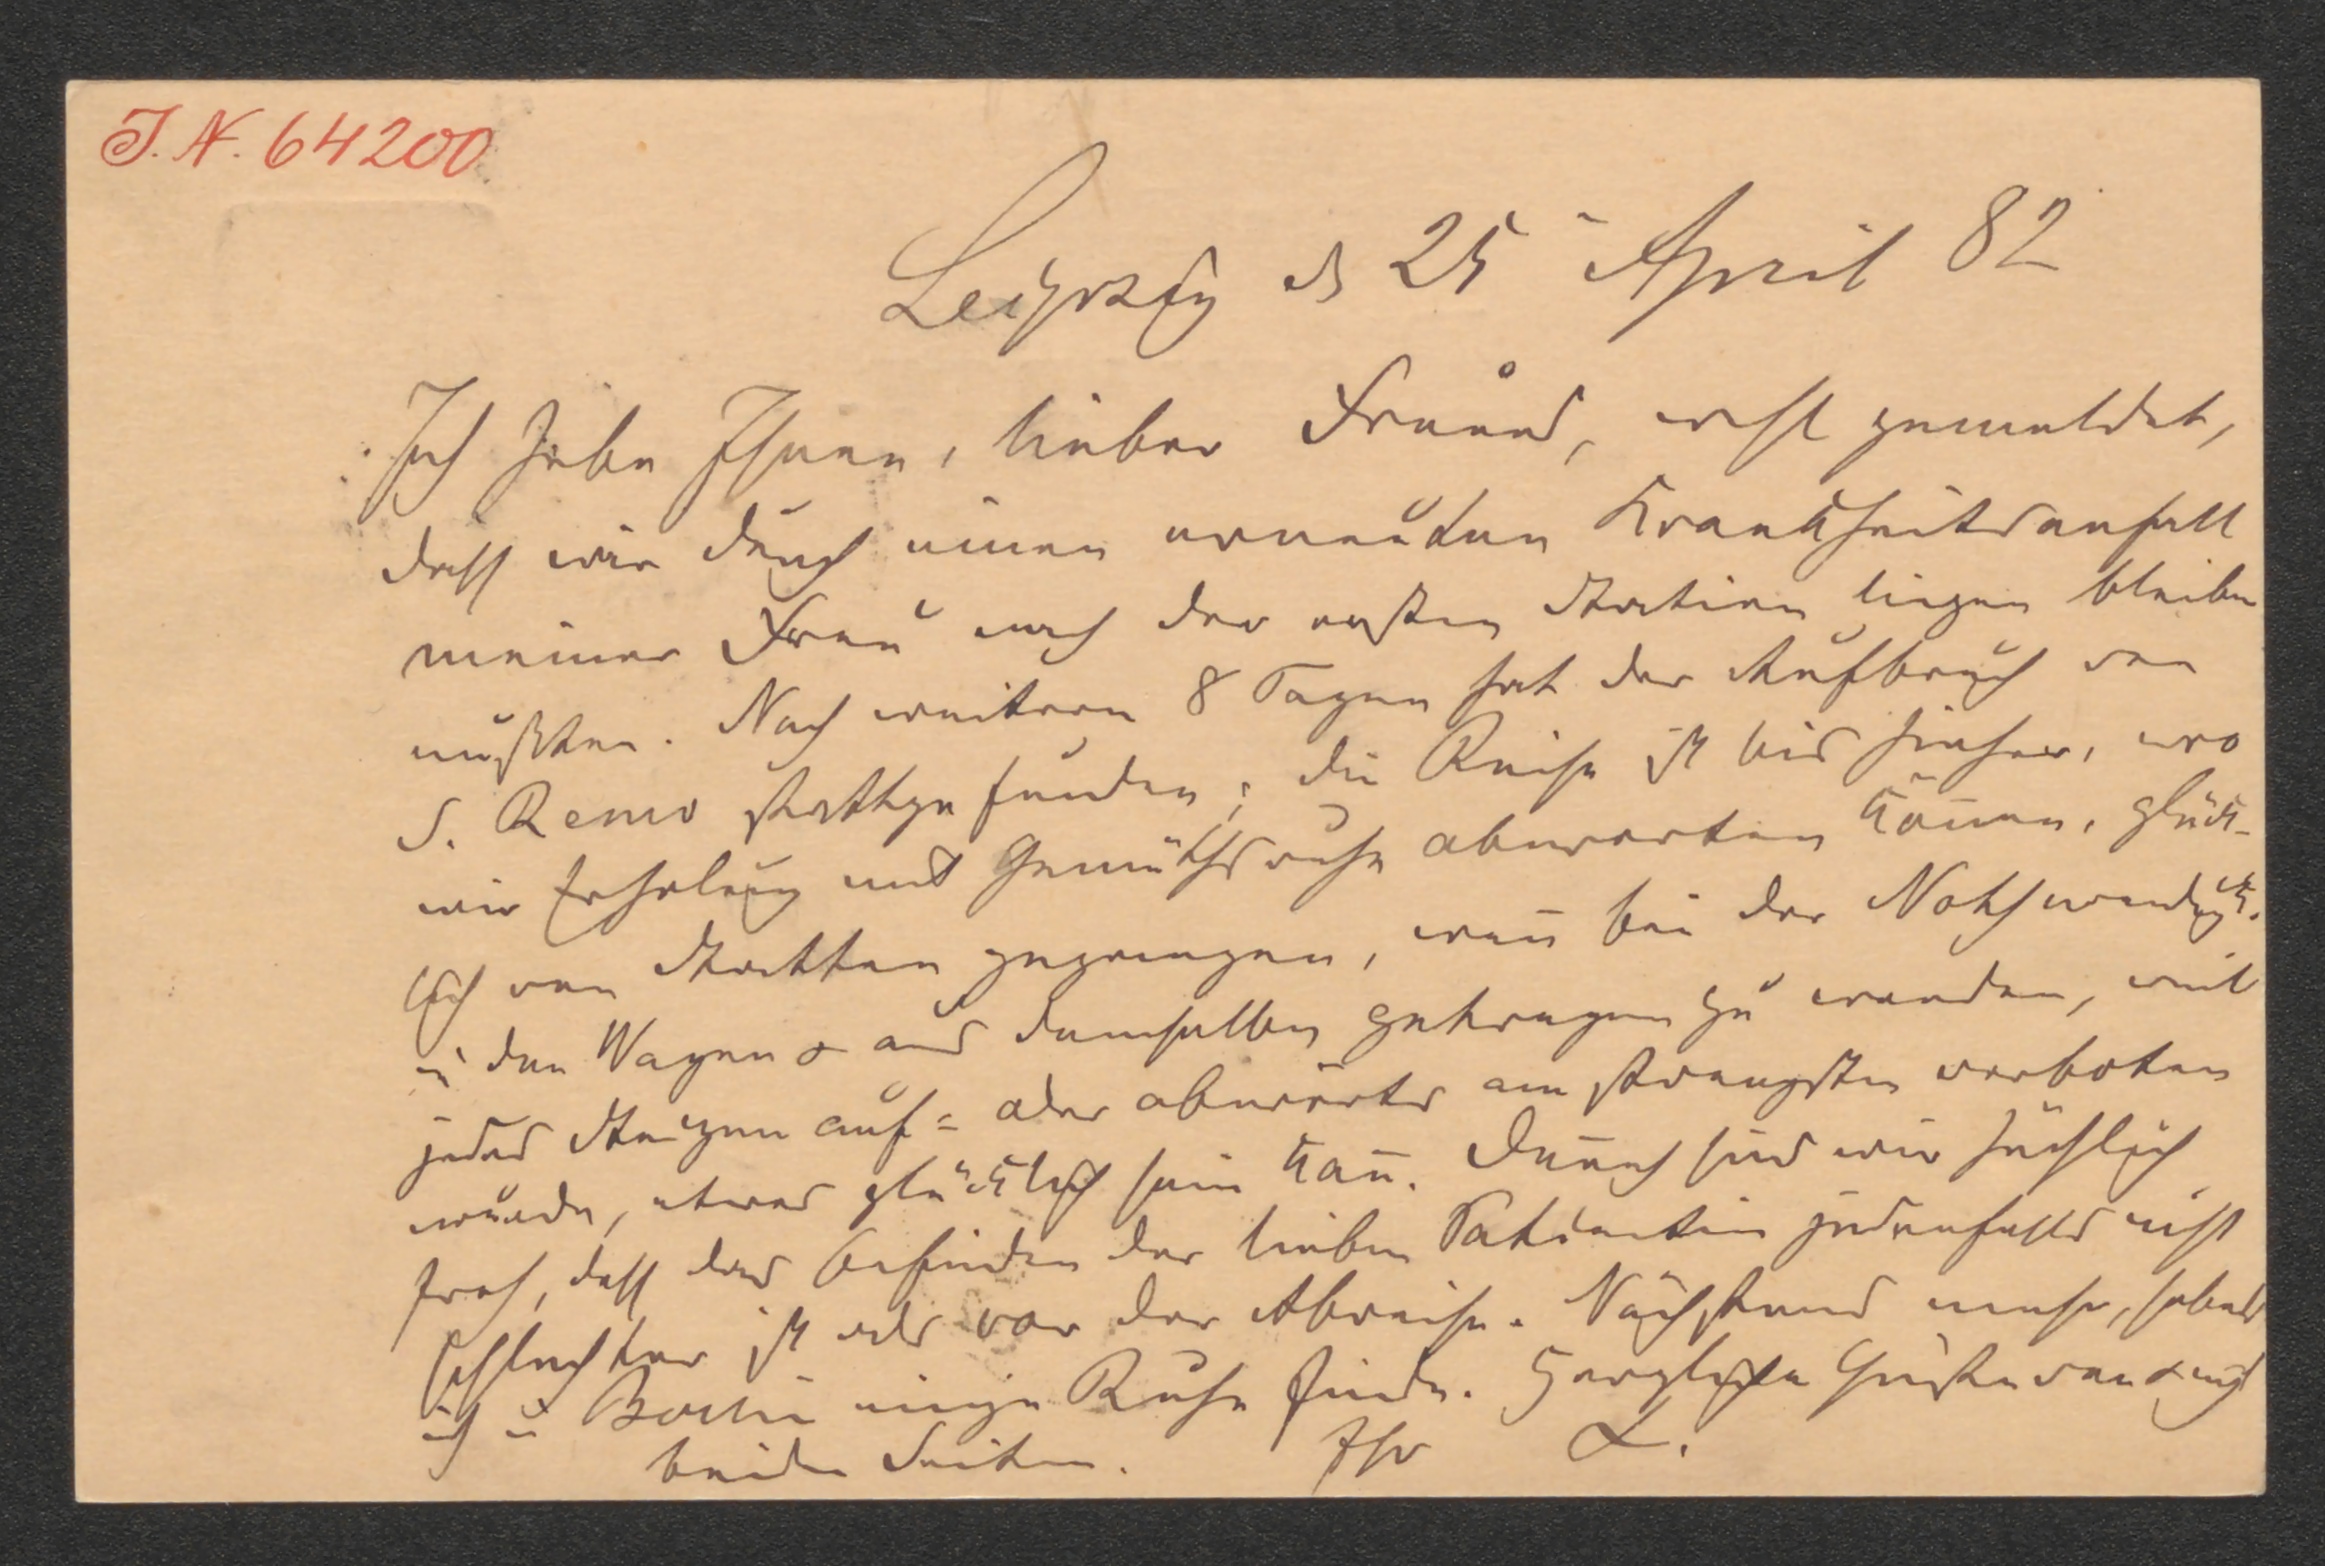 J. N. 64200
Leipzig d 25 April 82
Ich habe Ihnen, lieber Freund, nicht gemeldet,
daß wir durch einen erneuten Krankheitsanfall
meiner Frau nach der ersten Station liegen bleiben
mußten. Nach weitern 8 Tagen hat der Aufbruch von
S. Remo stattgefunden; die Reise ist bis hieher, wo
wir Erholung und Gemüthsruhe abwarten können, glück-
lich von Statten gegangen, wenn bei der Nothwendigk.
in den Wagen & aus demselben getragen zu werden, weil
jedes Steigen auf= oder abwärts am strengsten verboten
wurde, etwas glücklich sein kann. Dennoch sind wir
froh, daß das Befinden der lieben Patientin jedenfalls nicht
schlechter ist als vor der Abreise. Nächstens mehr, sobald
ich in Berlin einige Ruhe finde. Herzliche Grüße von & nach
beiden Seiten. Ihr L.